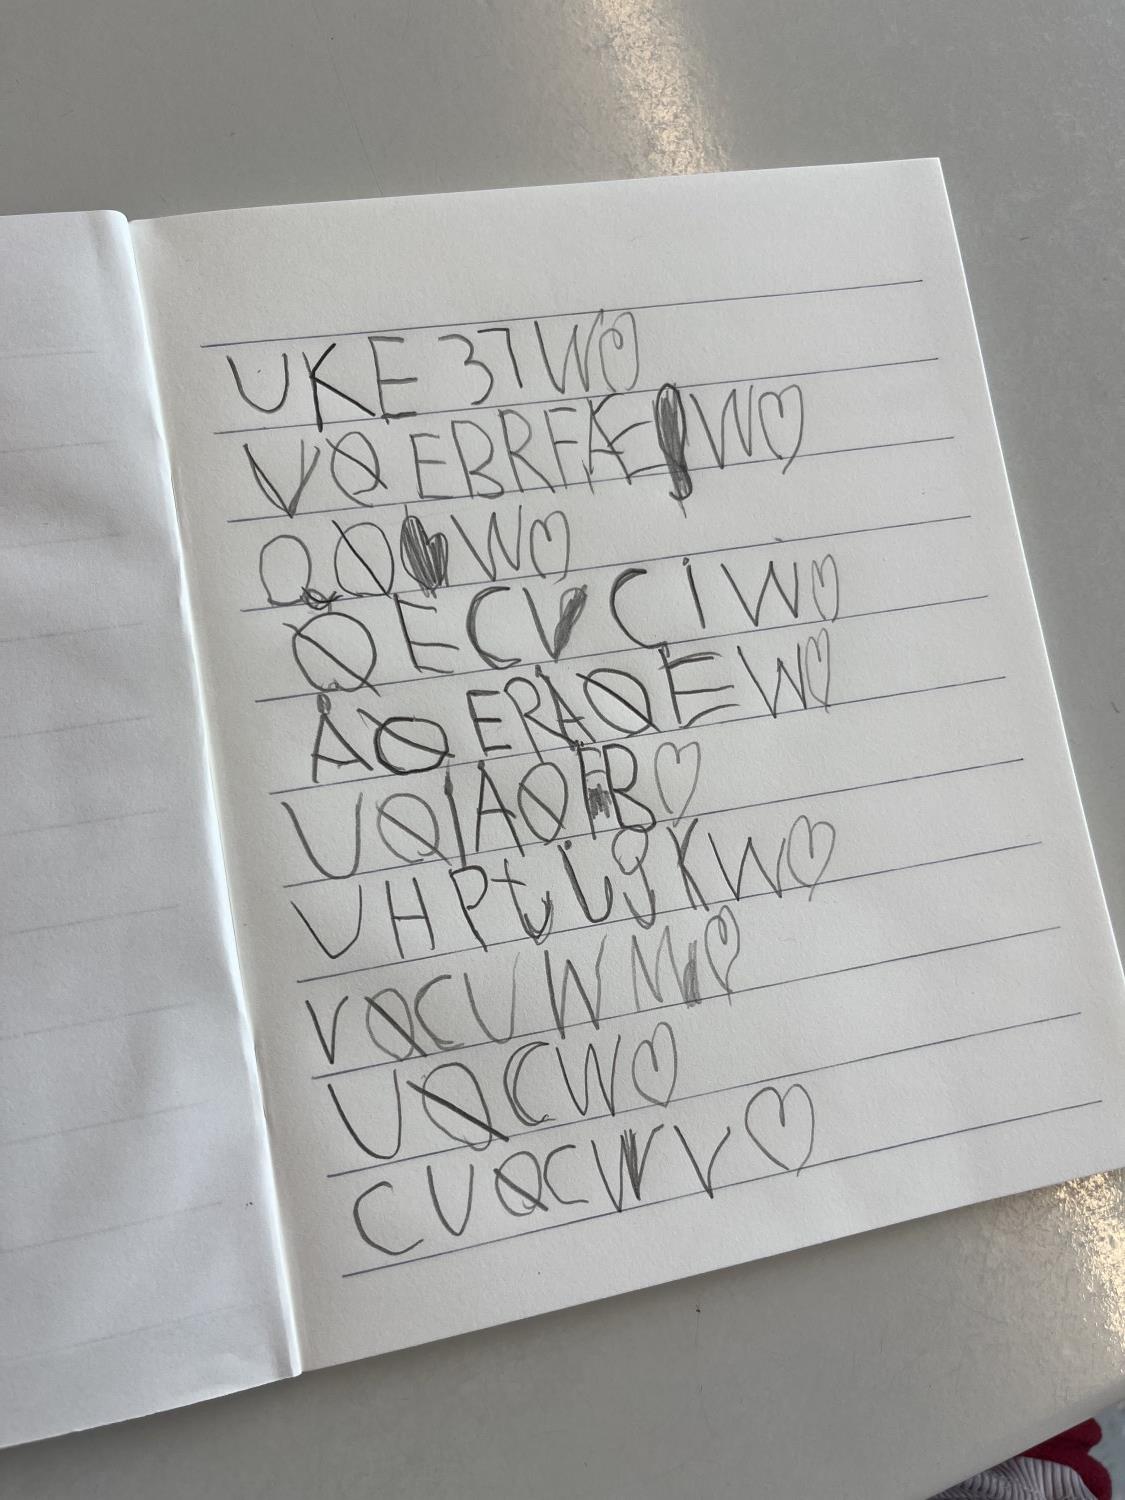 UKE 37 W♡
VØ EBRFÆ W♡
QØ W♡
ØECV CIW♡
ÅØ ERAØEW♡
UØIAØFB♡
UHPtijKW♡
VØCUWM♡
UØCW♡
CUØCWV♡